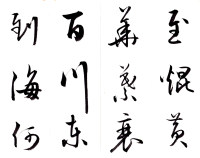 至焜黄
華葉衰
百川东
到海何